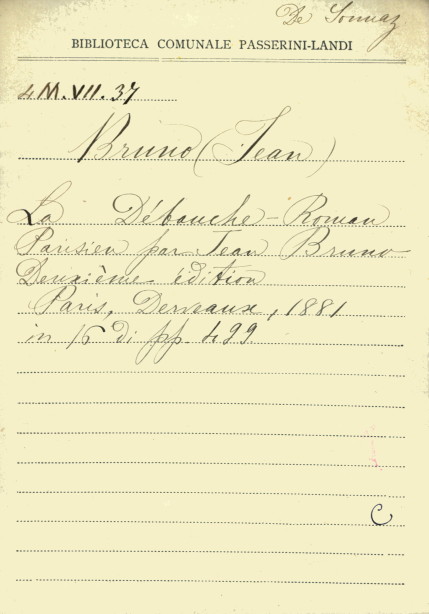 De Sonnaz
BIBLIOTECA COMUNALE PASSERINI-LANDI
4 M. VII. 37
Bruno (Jean)
La Débauche - Roman
Parisien par Jean Bruno
Deuxième édition
Paris, Derveaux, 1881
in 16 di pp. 499
C